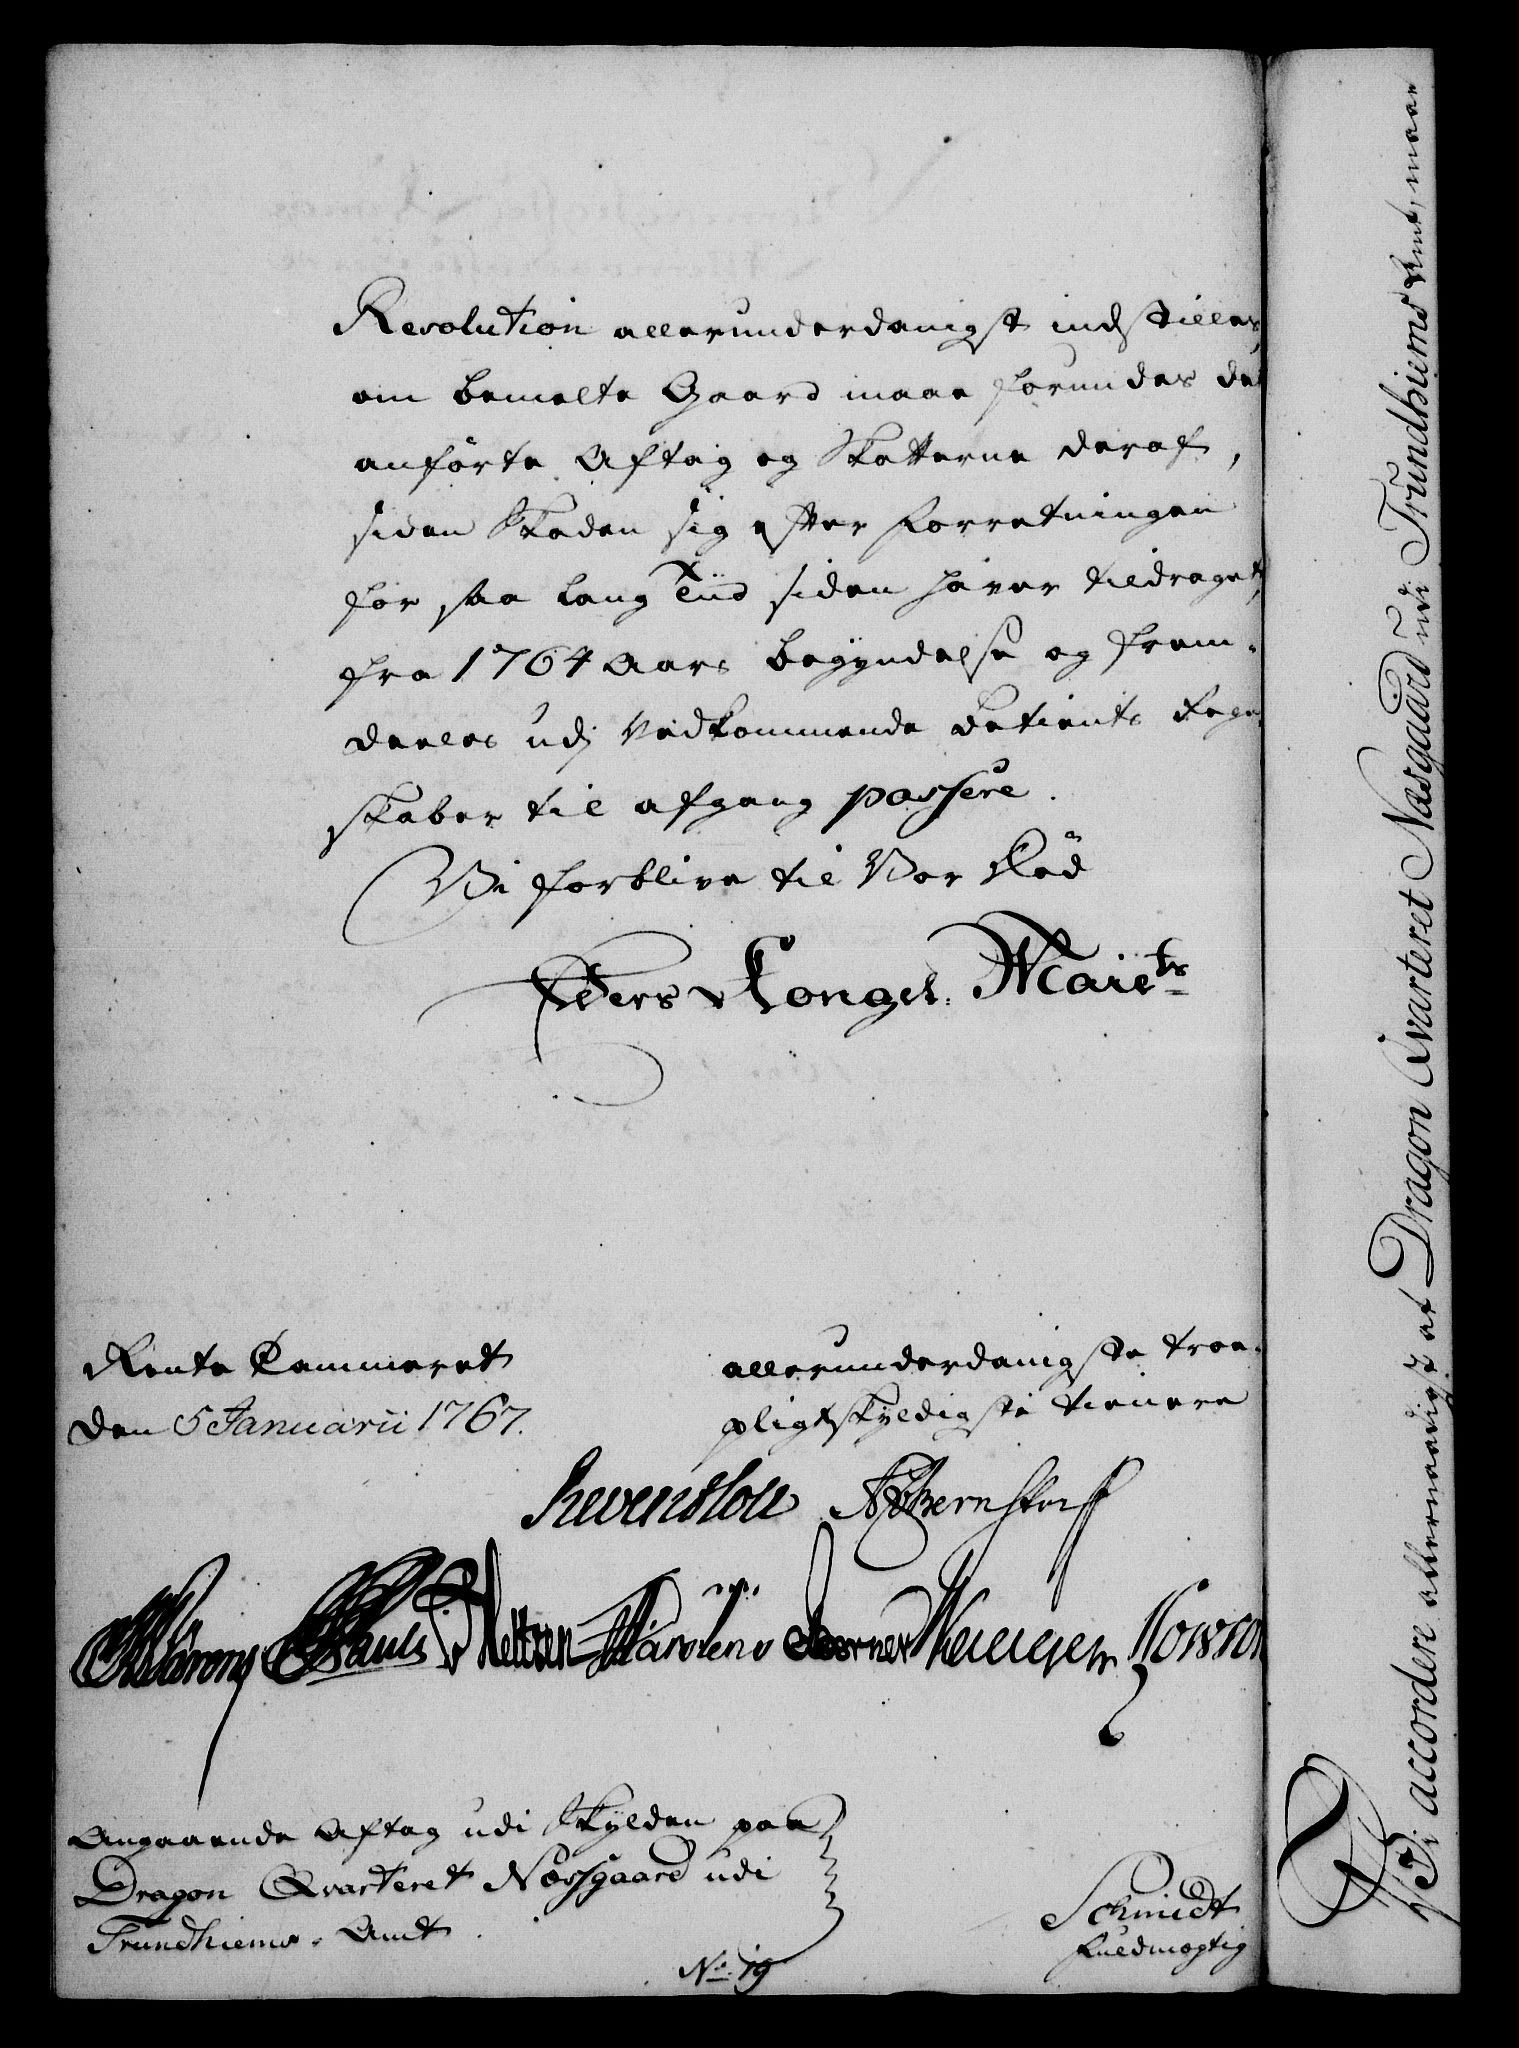 Resolution allerunderdanigst indstilles,
om bemelte Gaard maae forundes det
anförte Aftag og Skatterne deraf,
siden Skaden sig efter Forretningen
for saa lang Tiid siden haver tildraget,
fra 1764 Aars Begyndelse og frem-
deeles udj Vedkommende Betients Regn-
skaber til afgang passere.
Vi forblive til Vor Död
Eders Kongel. Maiets
Rente Cammeret
den 5 Januarii 1767.
allerunderdanigste troe-
pligtskyldigste tienere
Reventlow Bernstorff
Pauli Heltzen Kowson
Angaaende Aftag udi Skylden paa
Dragon Qvarteret Næssgaard udi
Trundhiems-Amt.
No. 19
Schmidt
Fuldmægtig
Vi accordere allernaadigst at Dragon Qvarteret Næsgaard udi Trundhiems Amt, maae